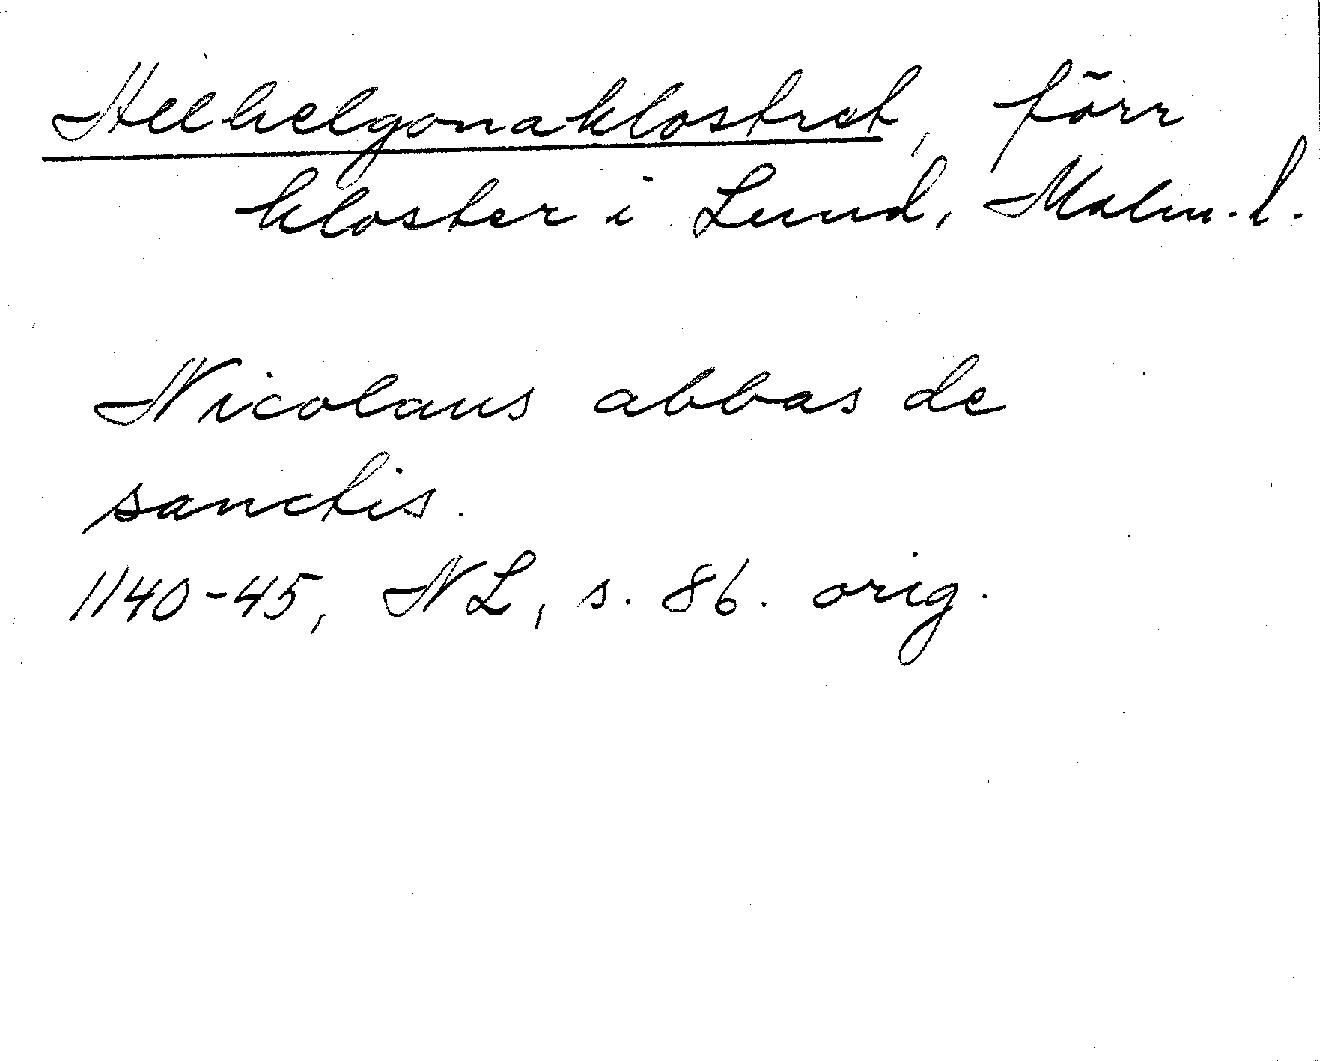 Allhelgonaklostret, förr
kloster i Lund, Malm. l.
Nicolaus abbas de
sanctis.
1140-45, NL, s. 86. orig.